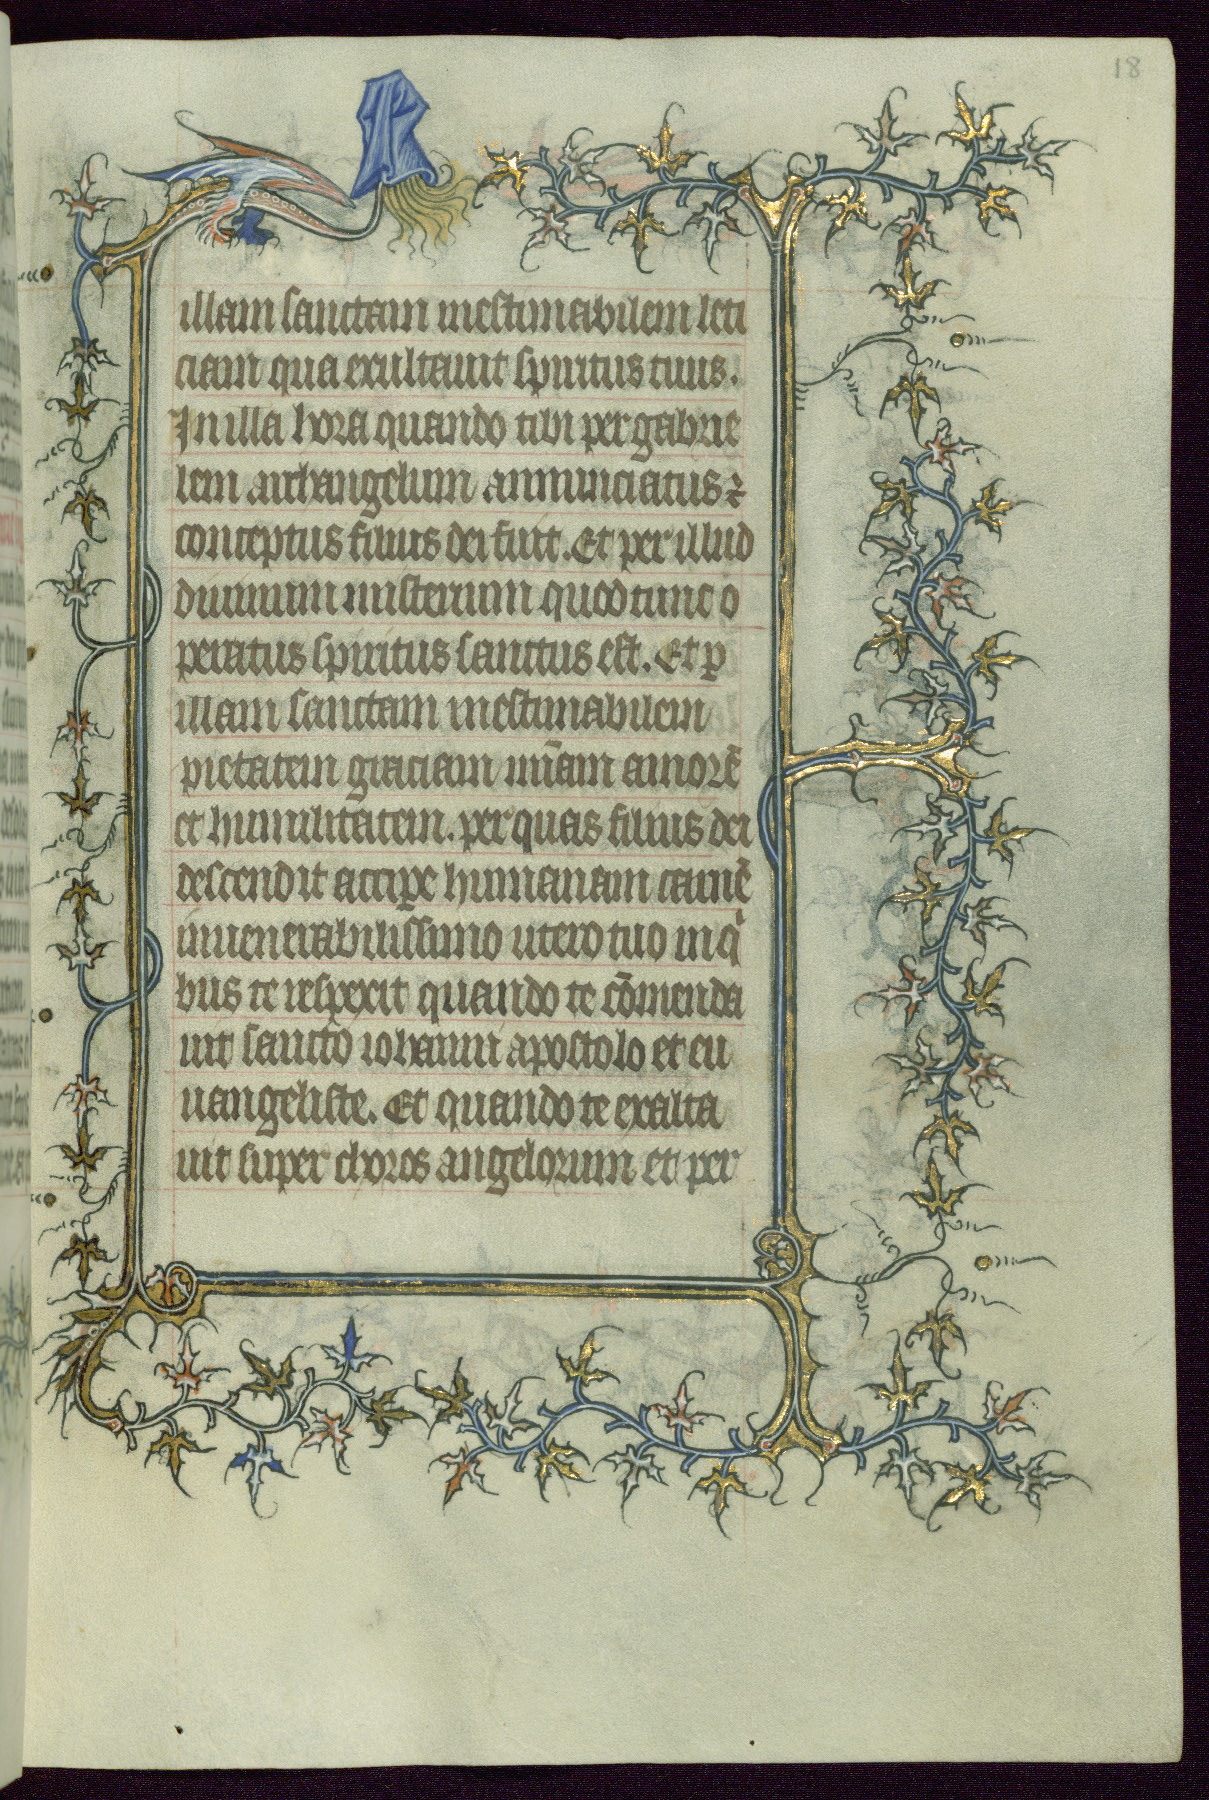 18
illam sanctam inestimabilem leti
ciam qua exultauit spiritus tuus.
In illa hora quando tibi per gabrie
lem archangelum annunciatus ⁊
conceptus filius dei fuit. Et per illud
diuinum misterium quod tunc o
peratus spiritus sanctus est. Et ꝑ
illam sanctam inestimabilem
pietatem graciam mīam amorē
et humilitatem. per quas filius dei
descendit accipe humanam carnē
in uenerabilissimo utero tuo in qͥ
bus te respexit quando te cōmenda
uit sancto iohanni apostolo et eu
uangeliste. Et quando te exalta
uit super choros angelorum et per